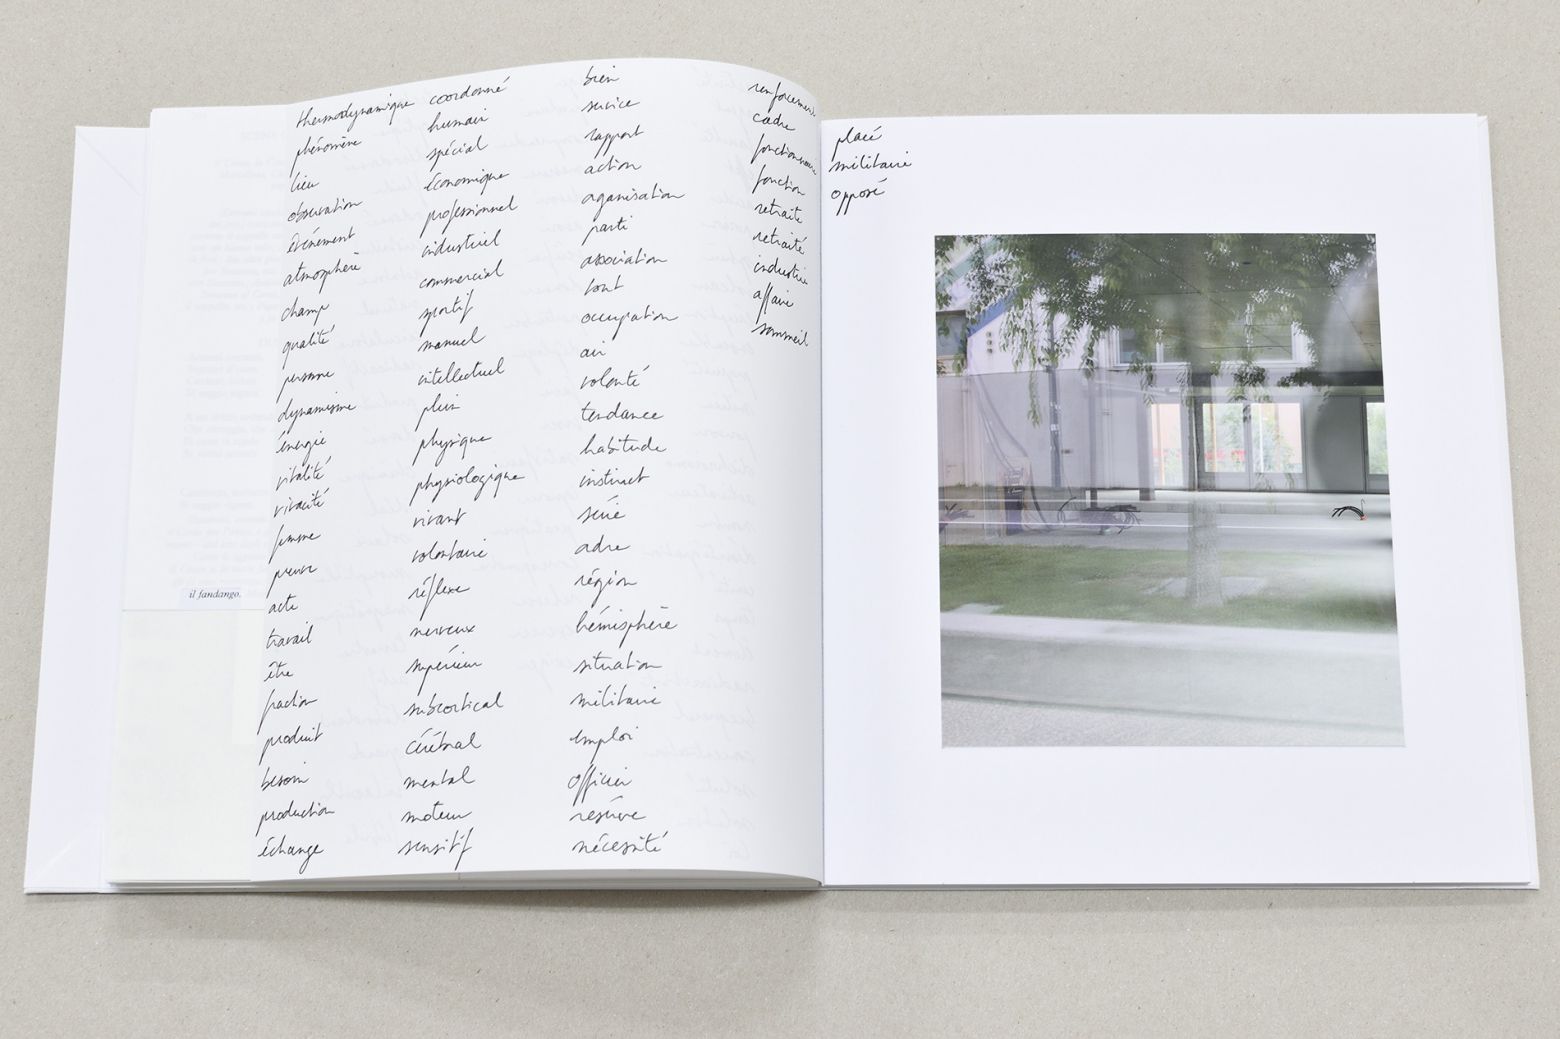 thermodynamique
phénomène
lieu
observation
événement
atmosphère
champ
qualité
personne
dynamisme
énergie
vitalité
vivacité
femme
preuve
acte
travail
être
fraction
produit
besoin
production
échange
coordonné
humain
spécial
économique
professionnel
industriel
commercial
sportif
manuel
intellectuel
plein
physique
physiologique
vivant
volontaire
réflexe
nerveux
supérieur
subcortical
cérébral
mental
moteur
sensitif
bien
service
rapport
action
organisation
parti
association
tout
occupation
air
volonté
tendance
habitude
instinct
série
région
hémisphère
situation
militaire
emploi
officier
réserve
nécessité
renforcement
cadre
fonctionnaire
fonction
retraite
retraité
industrie
affaire
sommeil
placé
militaire
opposé
il fandango.